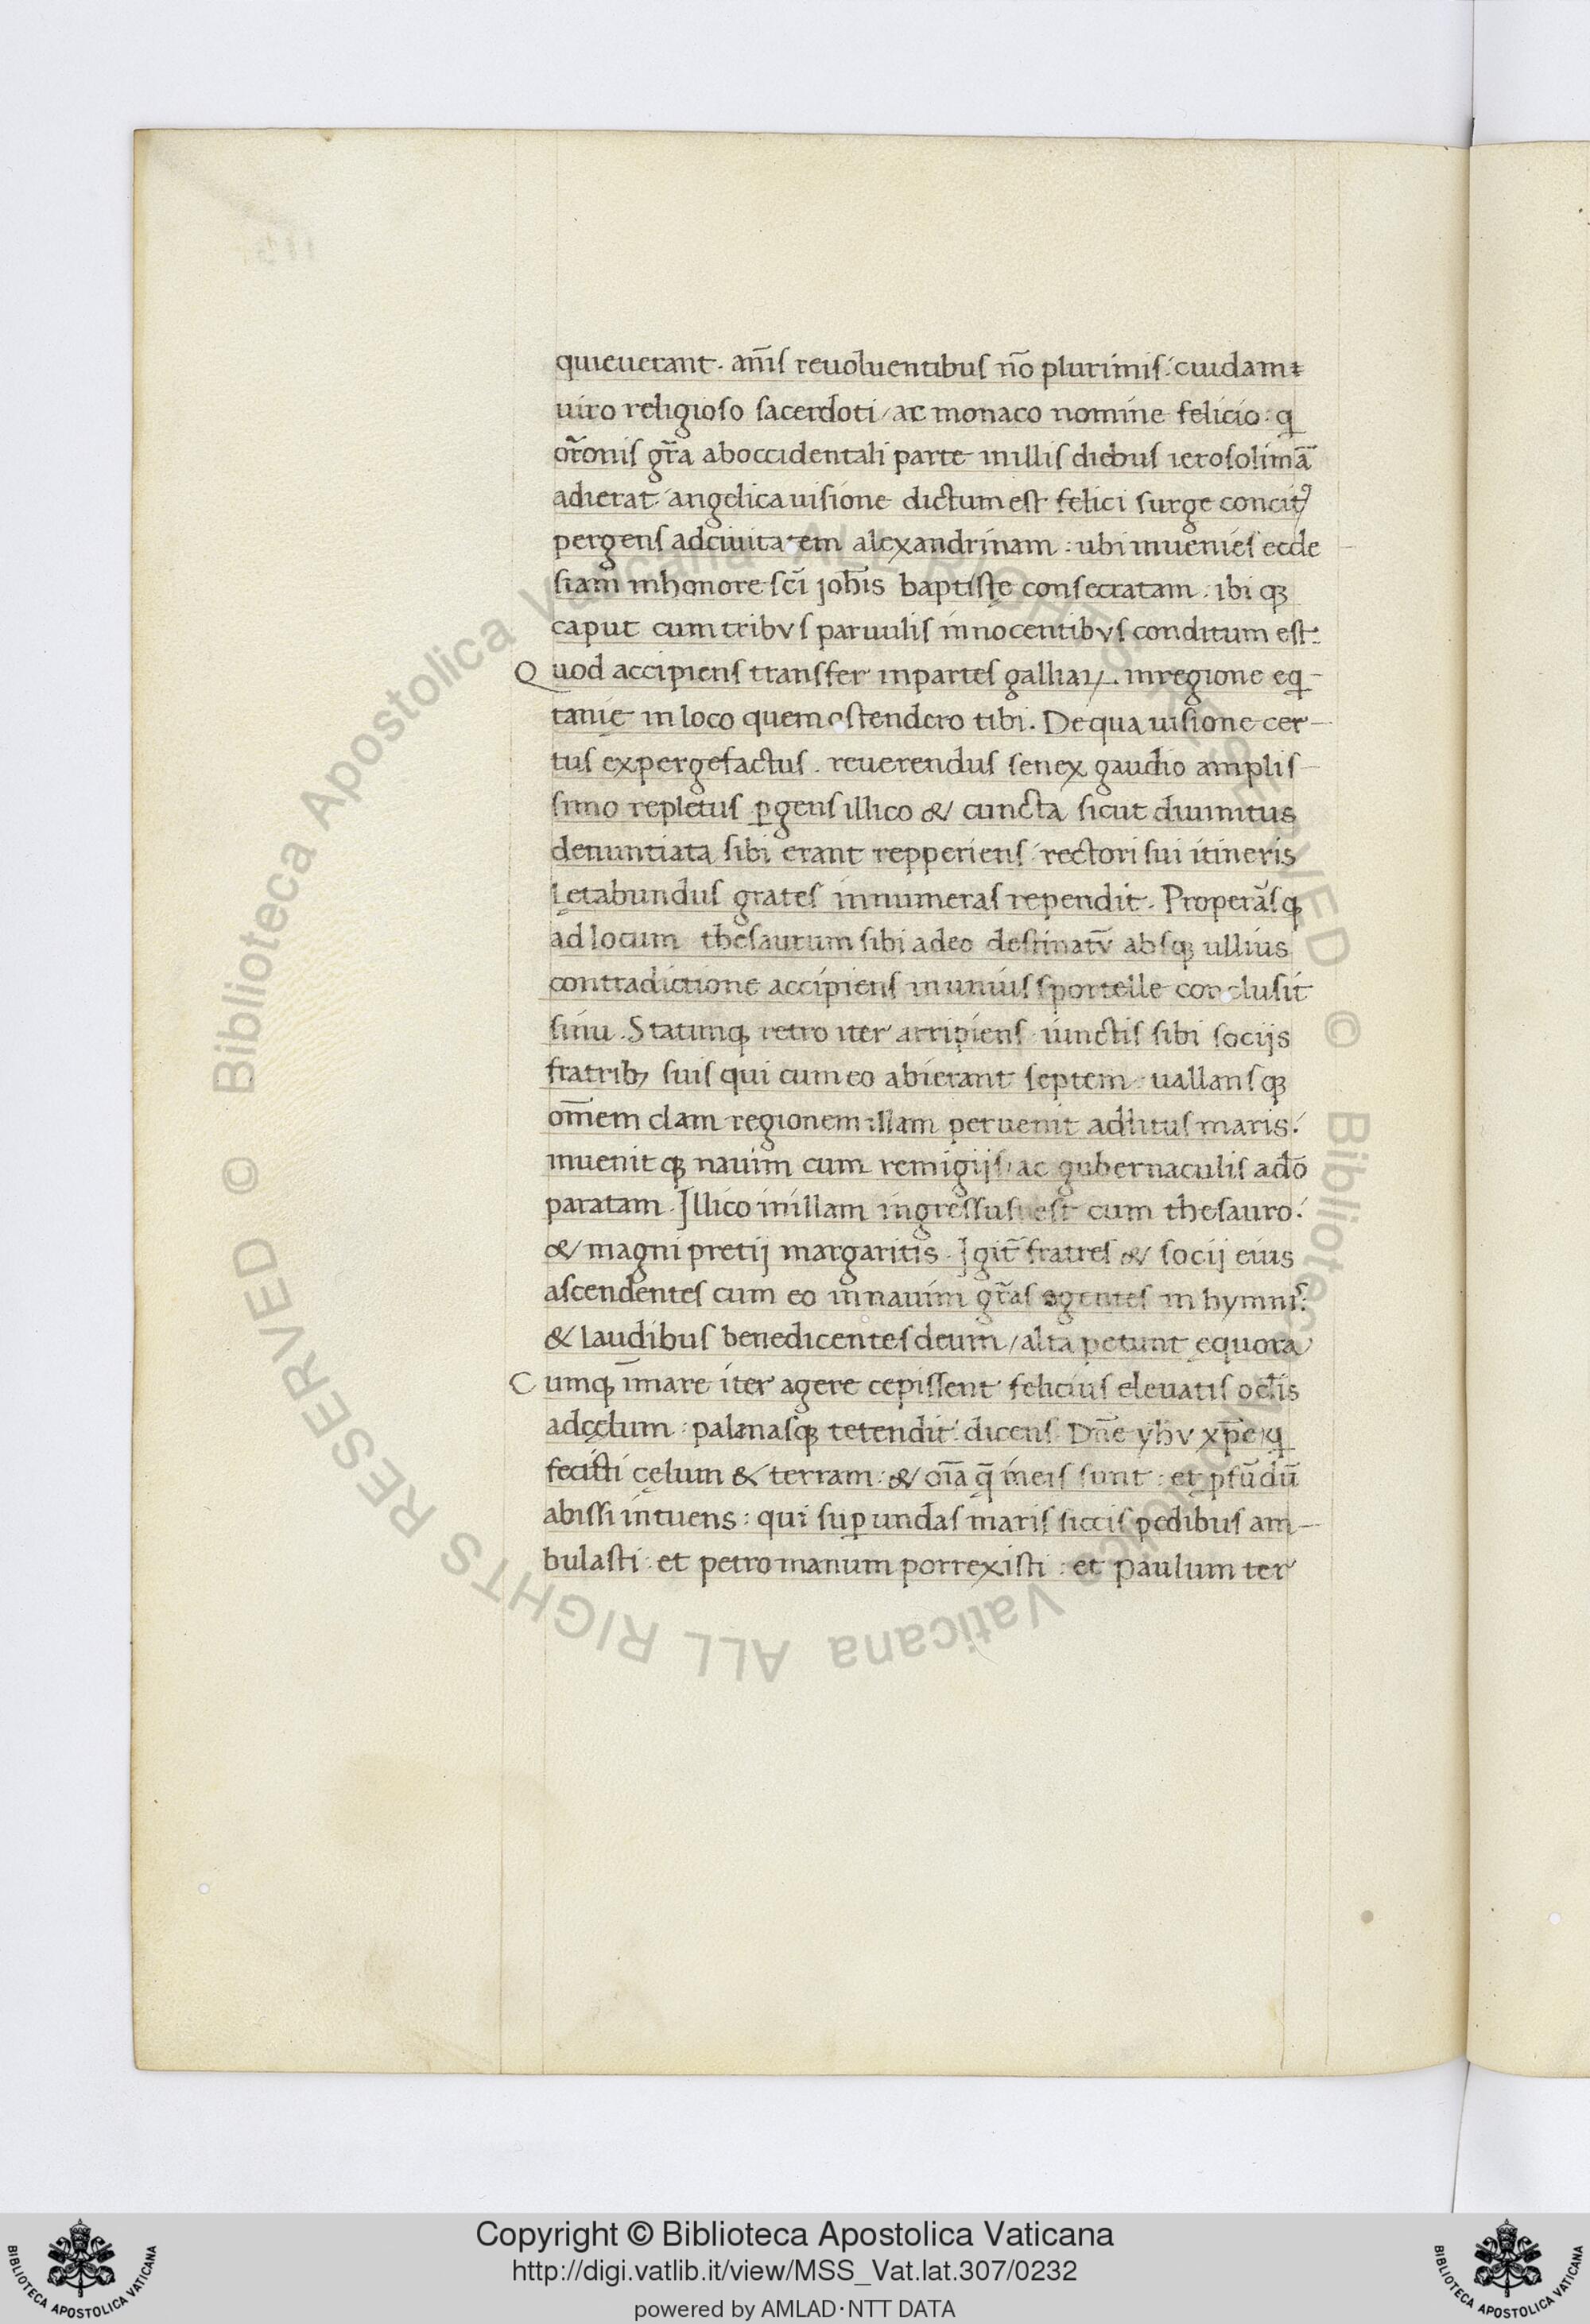 quieuerant. an̄is reuoluentibus nō plurimis: cuidam
uiro religioso sacerdoti / ac monaco nomine felicio: q
or̄onis gr̄a aboccidentali parte inillis diebus ierosolimā
adierat: angelica uisione dictum est felici surge concitꝰ
pergens adciuitatem alexandrinam: ubi inuenies eccle
siam inhonore sc̄i joh̄is baptistę consecratam. ibi qꝫ
caput cum tribus paruulis innocentibus conditum est:
Quod accipiens transfer inpartes galliaꝝ. inregione eq
tanię in loco quem ostendero tibi. De qua uisione cer
tus expergefactus. reuerendus senex gaudio amplis
simo repletus ꝑgens illico & cuncta sicut diuinitus
denuntiata sibi erant repperiens: rectori sui itineris
lętabundus grates innumeras rependit. Properāsqꝫ
ad locum thesaurum sibi adeo destinatū absqꝫ ullius
contradictione accipiens inunius sportelle conclusit
sinu. Statimqꝫ retro iter arripiens iunctis sibi socijs
fratribꝫ suis qui cum eo abierant septem: uallansqꝫ
om̄em clam regionem illam peruenit adlitus maris:
inuenit qꝫ nauim cum remigijs / ac gubernaculis adō
paratam. Illico inillam ingressus est cum thesauro:
& magni pretij margaritis. Igit̄ fratres & socij eius
ascendentes cum eo innauim gr̄as agentes in hymnis:
& laudibus benedicentes deum / alta petunt ęquora
Cumqꝫ īmare iter agere cepissent felicius eleuatis oc̄lis
adcęlum: palmasqꝫ tetendit: dicens Dn̄e yhu xp̄e q
fecisti cęlum & terram: & oīa q̄ ineis sunt: et ꝓfūdū
abissi intuens: qui suꝑ undas maris siccis pedibus am
bulasti: et petro manum porrexisti: et paulum ter
Copyright © Biblioteca Apostolica Vaticana
http://digi.vatlib.it/view/MSS_Vat.lat.307/0232
powered by AMLAD·NTT DATA
BIBLIOTECA APOSTOLICA VATICANA
BIBLIOTECA APOSTOLICA VATICANA
© Biblioteca Apostolica Vaticana ALL RIGHTS RESERVED © Biblioteca Apostolica Vaticana ALL RIGHTS RESERVED